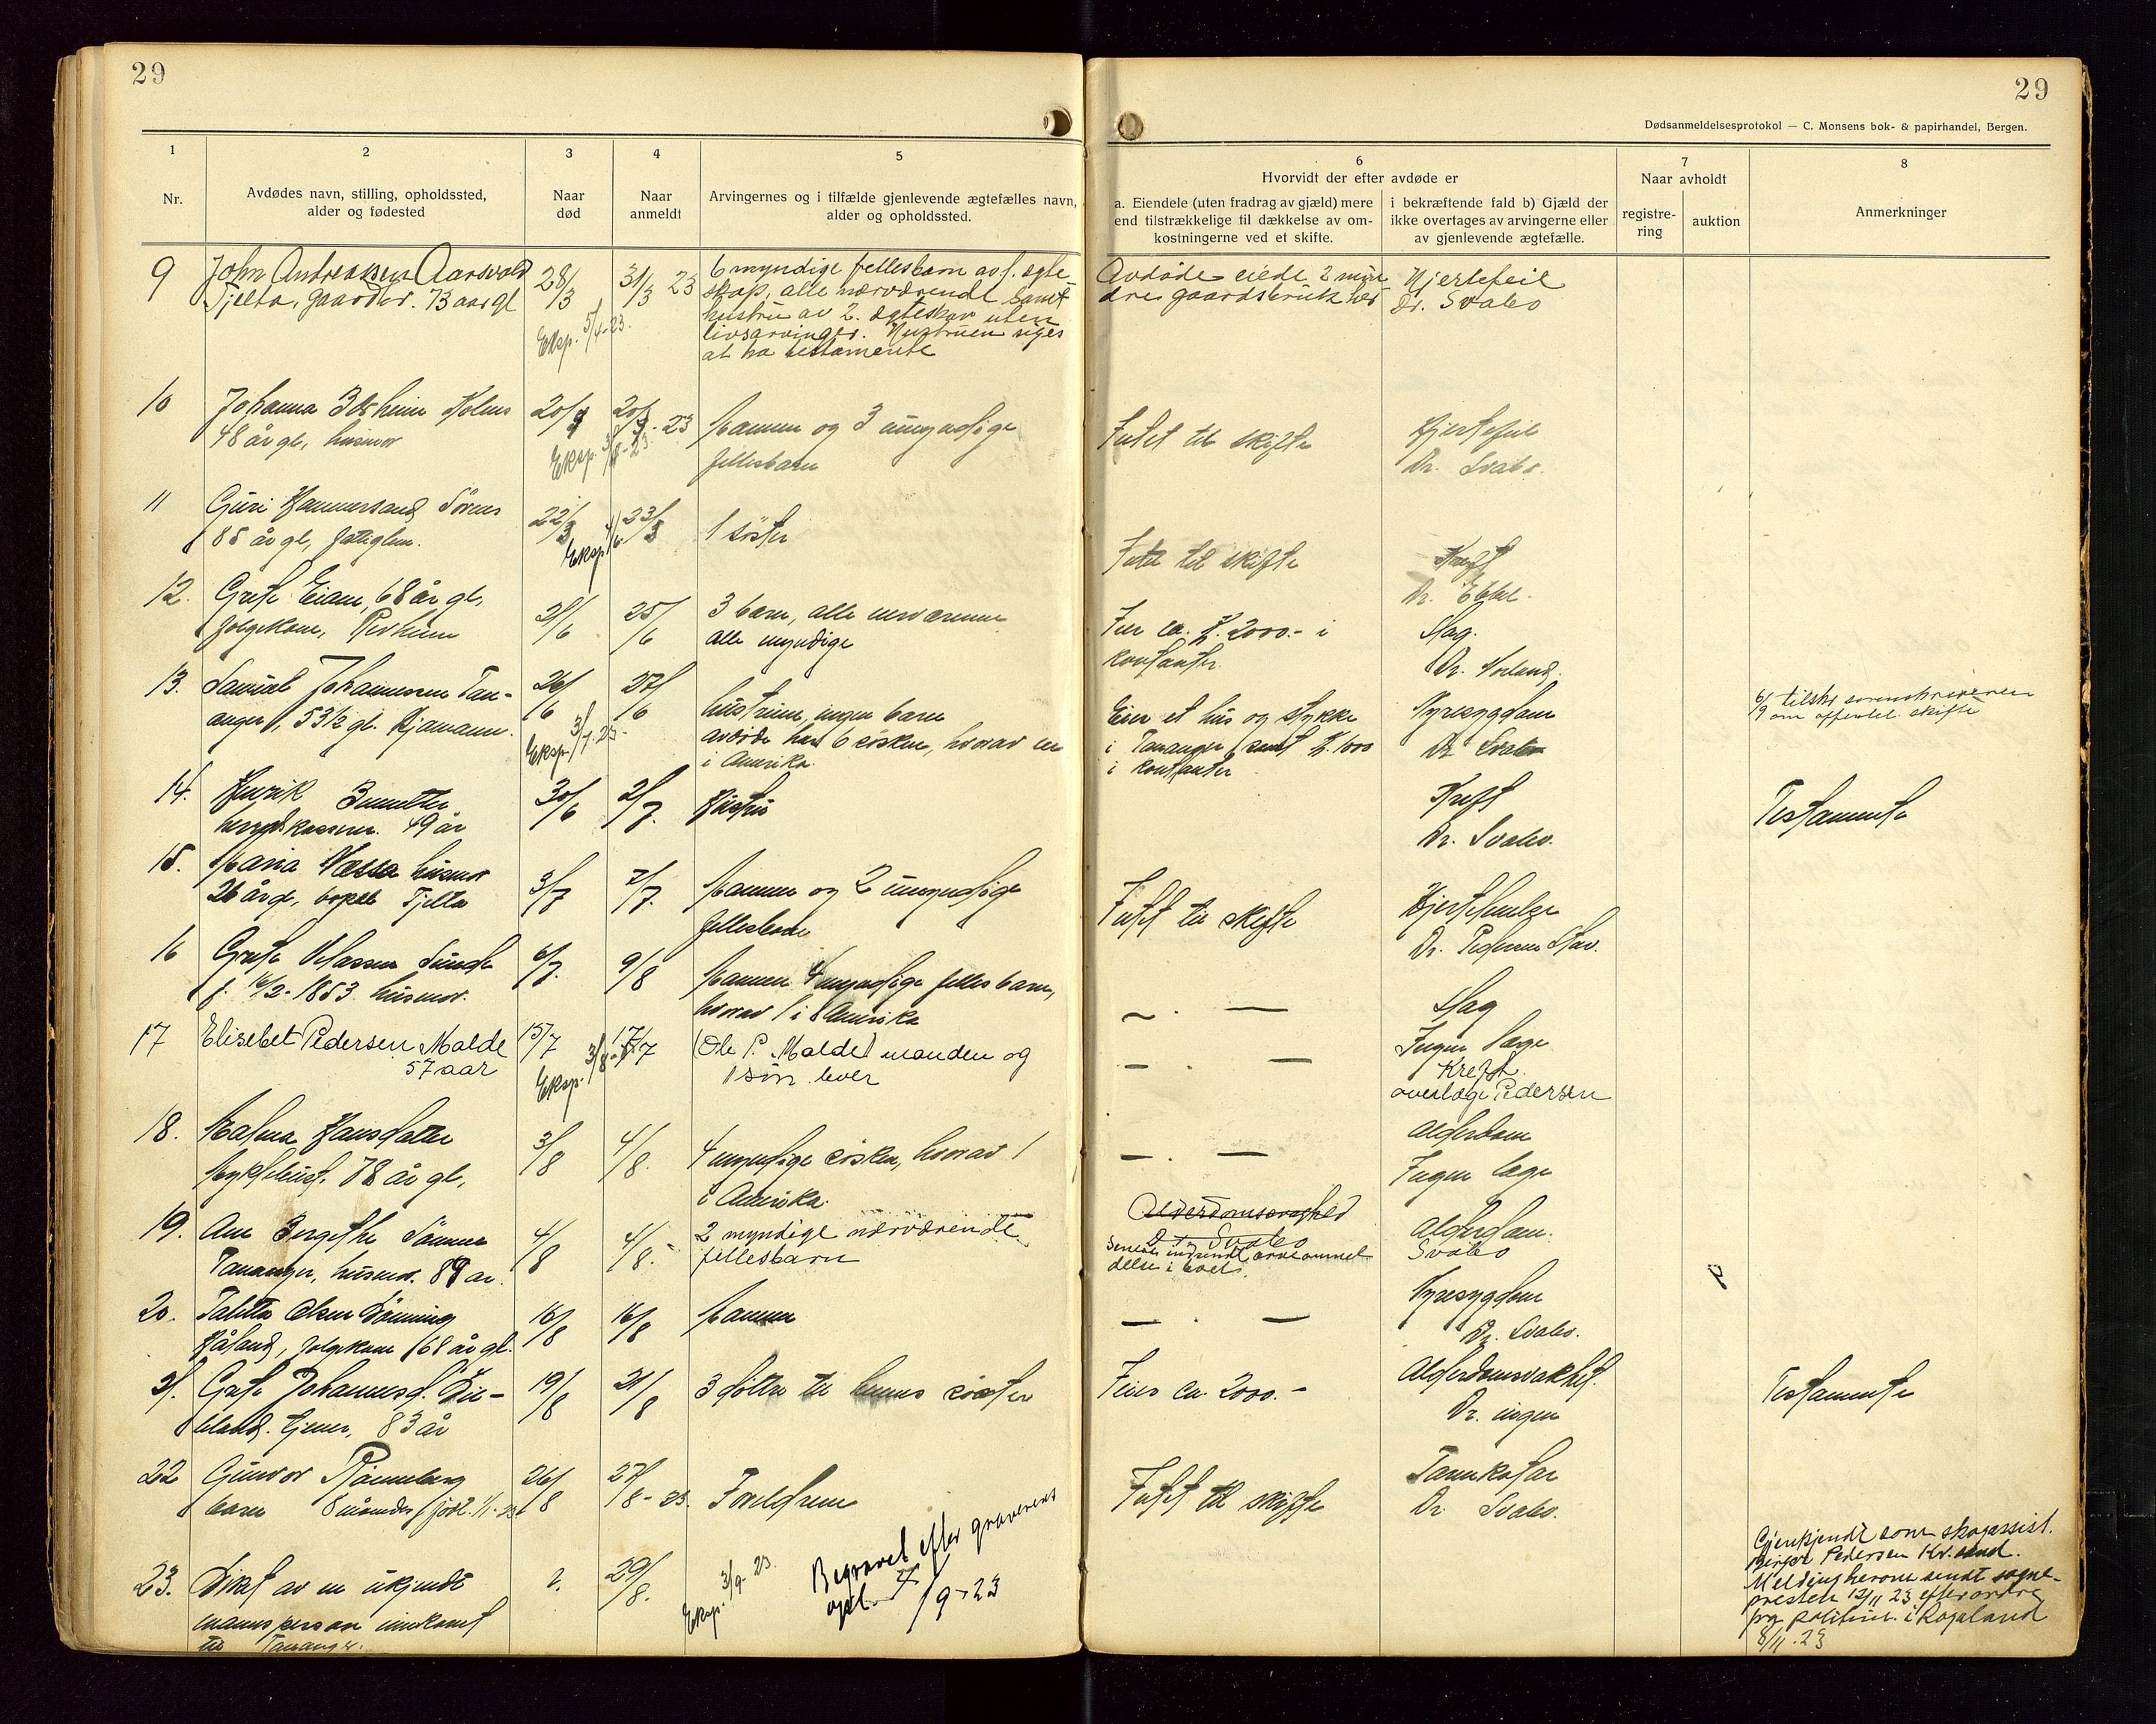 29
29
Dødsanmeldelsesprotokol — C. Monsens bok- & papirhandel, Bergen.
1
Nr.
2
Avdødes navn, stilling, opholdssted,
alder og fødested
3
Naar
død
4
Naar
anmeldt
5
Arvingernes og i tilfælde gjenlevende ægtefælles navn,
alder og opholdssted.
6
Hvorvidt der efter avdøde er
a. Eiendele (uten fradrag av gjæld) mere
end tilstrækkelige til dækkelse av om-
kostningerne ved et skifte.
i bekræftende fald b) Gjæld der
ikke overtages av arvingerne eller
av gjenlevende ægtefælle.
7
Naar avholdt
registre-
ring
auktion
8
Anmerkninger
9
John Andreassen Aarsvold
Tjelta, gaardbr. 73 aar gl
28/3
31/3 23
Eksp. 5/4-23.
6 myndige fellesbarn av f. egte
skap, alle nærværende samt
hustru av 2. egteskap uten
livsarvinger. Hustruen siges
at ha testamente
Avdøde eiede 2 min
dre gaardsbruk her
Hjertefeil
Dr. Svabo
10
Johanna Holms
48 år gl, husmor
20/3
20/3-23
Eksp.
Mannen og 3 umyndige
fellesbarn
Intet til skifte
Hjertefeil
Dr. Svabo.
11
Guri Hammersand Sörnes
85 år gl,
22/3
23/3
Eksp.
1 söster
Intet til skifte
Kreft
Dr. Ebbel.
12.
Grete 68 år gl,
folgekone,
21/6
25/6
3 barn, alle
alle myndige
Eier ca. K. 2000.- i
kontanter.
Slag.
Dr.
13.
Samuel Johannesen Tan-
anger, 53½ gl. Sjømann.
26/6
27/6
Eksp. 3/7-23-
hustruen, ingen barn
avdöde har 6 cösken, hvorav en
i Amerika.
Eier et hus og stykke
i Tananger samt K. 1600
i kontanter
Nyresygdom
Dr Svabo
6/9 tilskr sorenskriveren
om offentl. skifte
14.
Henrik
49 år
30/6
2/7.
Hustru
Kreft
Dr. Svabo.
Testamente
15.
Maria Næssa husmor
26 år gl, bopel Tjelta
3/7
7/7.
Mannen og 2 umyndige
fellesbarn
Intet til skifte
Hjertelammelse
Dr. Pedersen Stav.
16
Grete Sunde
f. 16/2-1853. husmor.
6/7.
9/8
Mannen 4 myndige fellesbarn,
hvorav 1 i Amerika
— . —
Slag
Ingen læge
17
Elisebet Pedersen Malde
57 aar
15/7
17/7
Eksp. 3/8
(Ole P. Malde) manden og
1 søn lever
— . —
Kreft.
overlæge Pedersen
18.
Malena Hansdatter
Myklebust. 78 år gl,
3/8
4/8.
4 myndige cösken, hvorav 1
i Amerika.
— . —
Alderdom
Ingen læge
19.
Ane Bergethe Sömme
Tananger, husmor. 89 år.
4/8
4/8.
2 myndige nærværende
fellesbarn
Alderdomssvaghed
Dr Svabo
Senere indsendt arveanmel
delse i boet.
Alderdom.
Svabo
20.
Talitta Olsen Dönning
Håland, folgekone 68 år gl.
16/8
16/8
Mannen
— . —
Nyresygdom
Dr. Svabo.
21.
Grete Johannesd.
tjener, 83 år
19/8
21/8
3 döttre til hennes cöster
Eier ca. 2000.-
Alderdomsvakhet.
Dr. ingen
Testamente
22
Gunvor
barn 8 måneder, född 1/1-23
26/8
27/8-23.
Foreldrene
Intet til skifte
Tarmkatar
Dr. Svabo.
23.
Liket av en ukjendt
mannsperson innkomt
til Tananger.
?.
29/8.
Eksp. 3/9-23.
Begravet efter graverens
opl. 7/9-23
Gjenkjendt som skogassist.
Birger Pedersen Kr.sand.
Melding herom sendt sogne-
presten 12/11 23 efter ordre
fra politim. i Rogaland
8/11-23